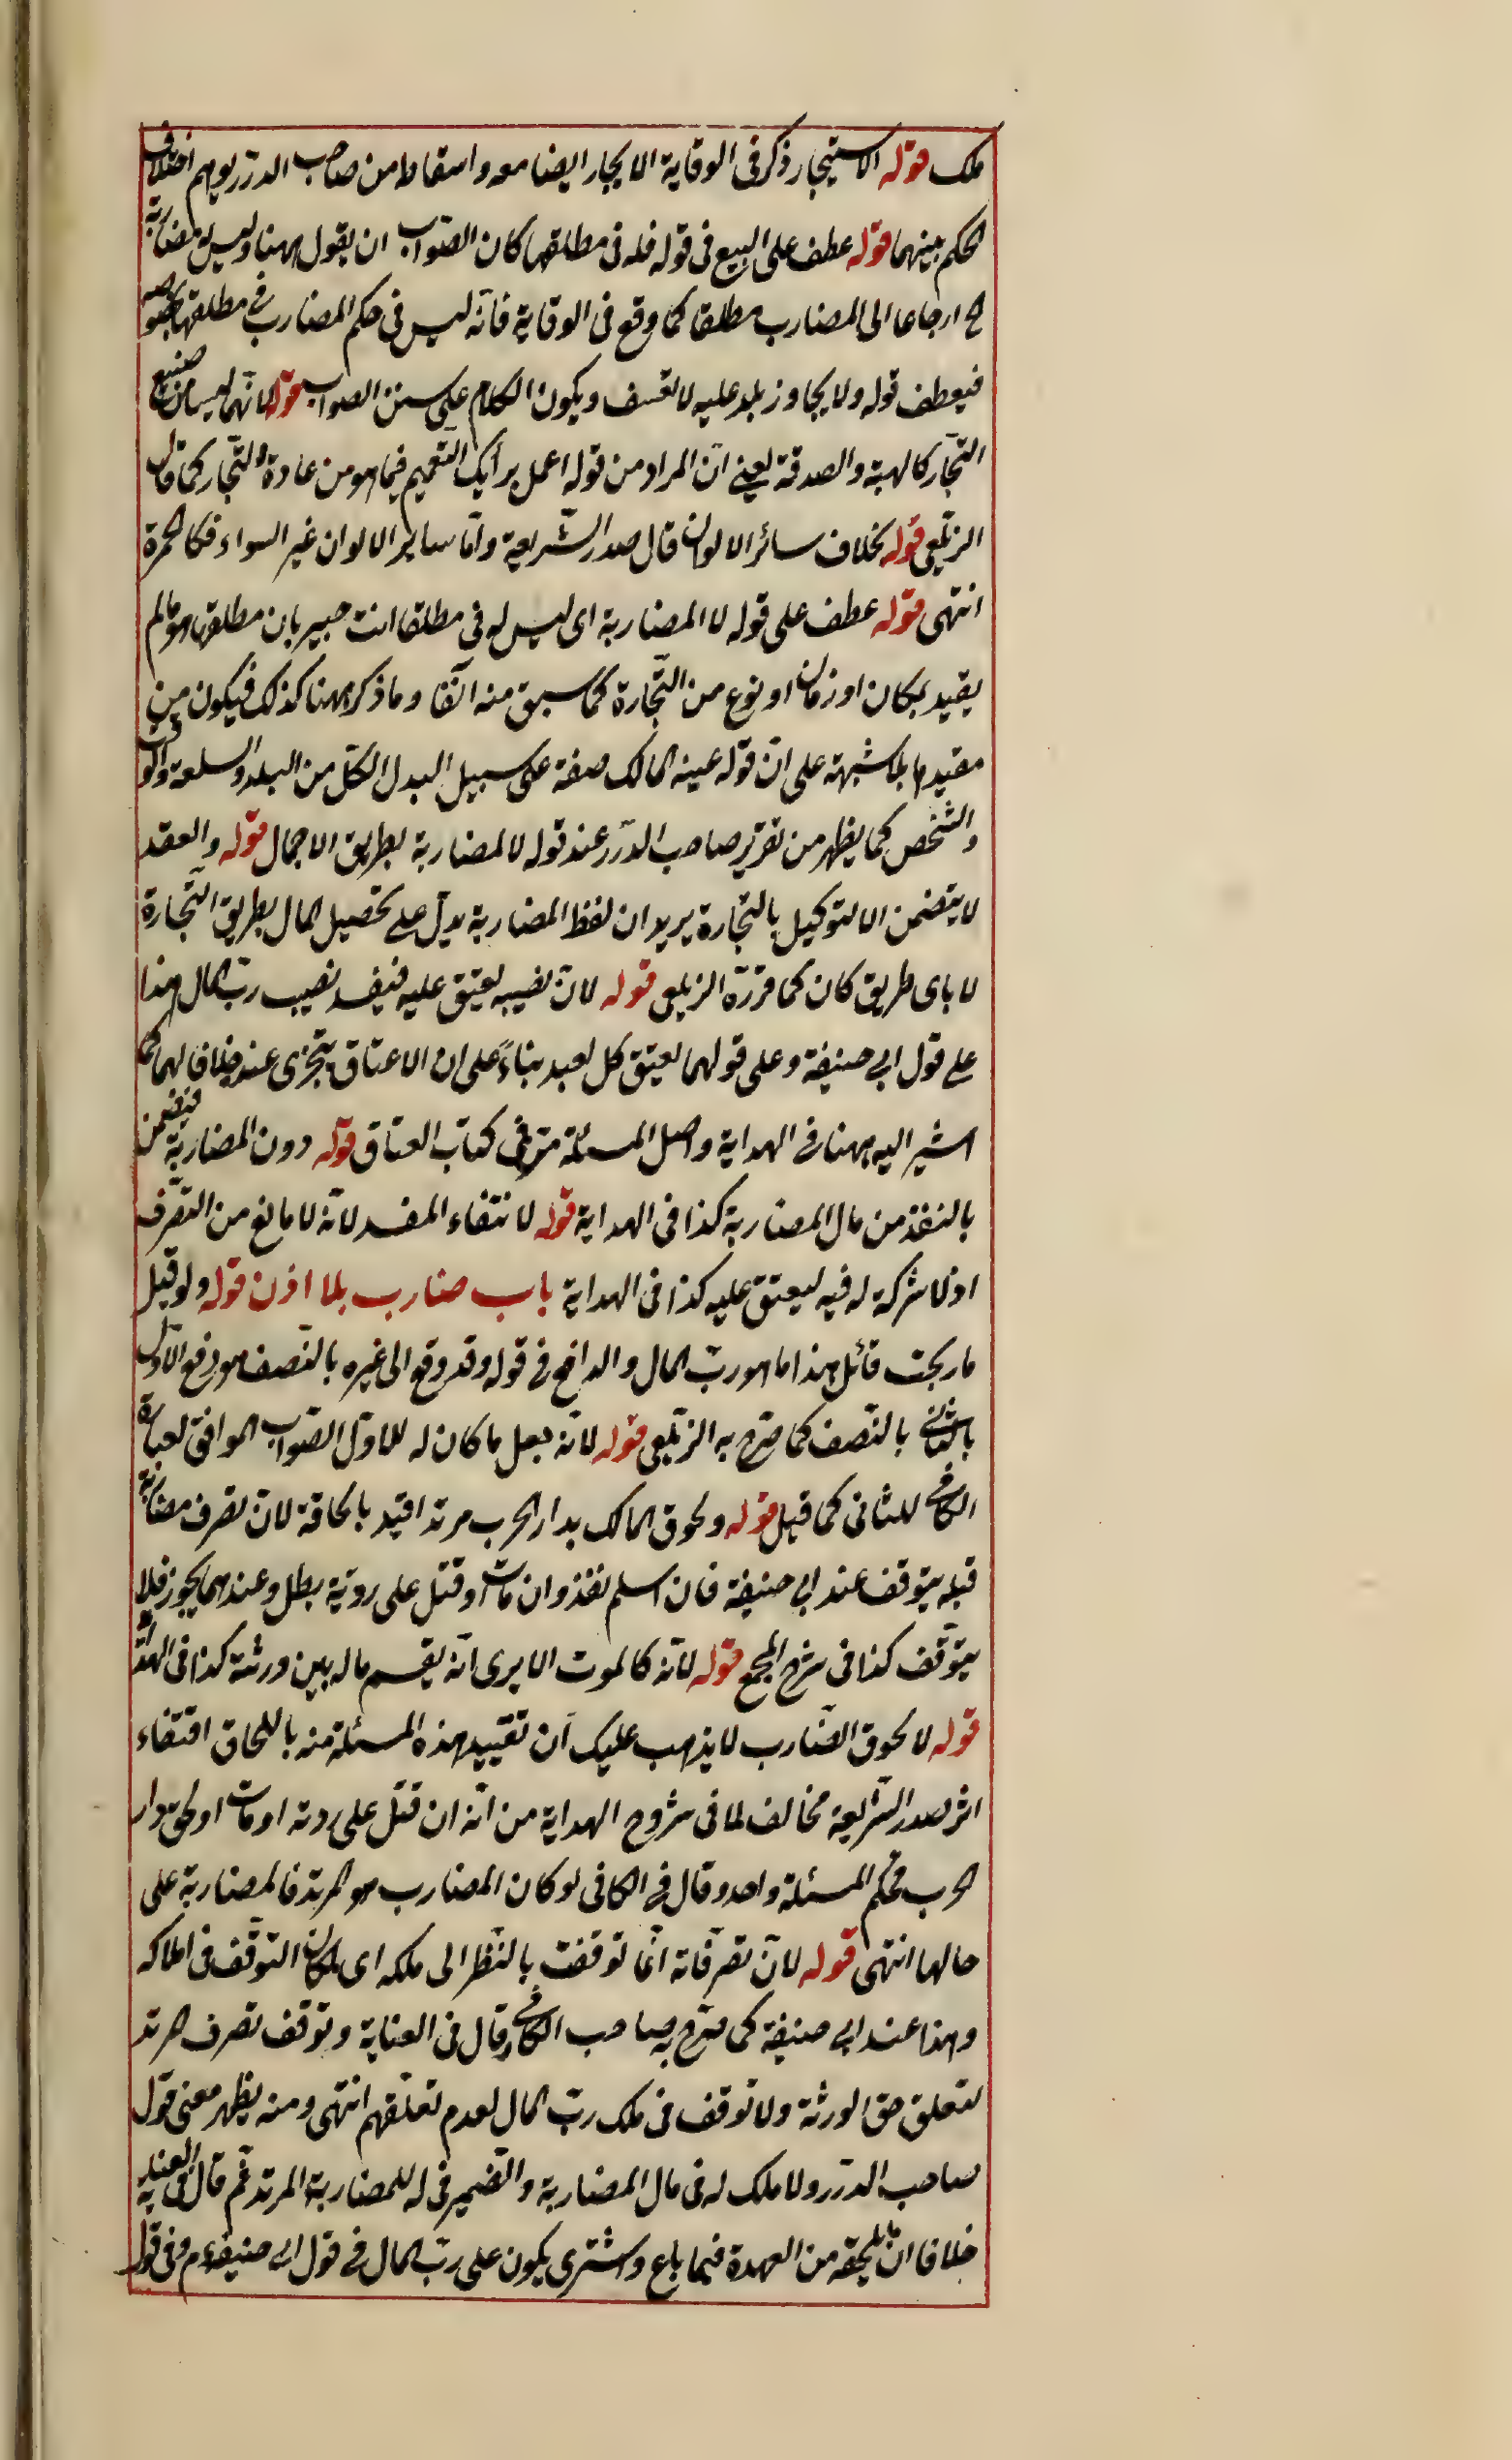 ملك قوله الاستيجار ذكر في الوقاية الايجار ايضا معه واسقاطه من صاحب الدرر يوهم اختلاف
الحكم بينهما قوله عطف على البيع في قوله فله في مطلقها كان الصواب ان يقول ههنا وليس لمضاربة
ح ارجاعا الى المضارب مطلقا كما وقع في الوقاية فانه ليس في حكم المضارب في مطلقها بخصوصه
فيعطف قوله ولا يجاوز بلد عليه لا تعسف ويكون الكلام على سنن الصواب قوله لانهما ليسا من صنيع
التجار كالهبة والصدقة يعني ان المراد من قوله اعمل برأيك التعميم فيما هو من عادة التجار كما قال
الزيلعي قوله بخلاف سائر الالوان قال صدر الشريعة واما ساير الالوان غير السواد فكالحمرة
انتهى قوله عطف على قوله لا المضاربة اى ليس له في مطلقا انت خبير بان مطلقها هو ما لم
يقيد بمكان او زمان او نوع من التجارة كما سبق منه آنفا وما ذكر ههنا كذلك فيكون من
مقيدها بلا شبهة على ان قوله عينه المالك صفة على سبيل البدل لكل من البلد والسلعة والوقت
والشخص كما يظهر من تقرير صاحب الدرر عند قوله لا المضاربة بطريق الاجمال قوله والعقد
لا يتضمن الا التوكيل بالتجارة يريد ان لفظ المضاربة يدل على تحصيل المال بطريق التجارة
لا باى طريق كان كما قرره الزيلعي قوله لان نصيبه يعتق عليه فيفسد نصيب رب المال هذا
على قول ابي حنيفة وعلى قولهما يعتق كل العبد بناءً على ان الاعتاق يتجزى عنده خلافا لهما كما
اشير اليه ههنا في الهداية واصل المسئلة مر في كتاب العتاق قوله دون المضاربة فيضمن
بالنقد من مال المضاربة كذا في الهداية قوله لانتفاء المفسد لانه لا مانع من التصرف
اذ لا شركة له فيه ليعتق عليه كذا في الهداية باب ضارب بلا اذن قوله ولو قيل
ما ربحت قائل هذا ما هو رب المال والدافع في قوله وقد وقع الى غيره بالنصف هو دفع الاول
بالثاني بالنصف كما صرح به الزيلعي قوله لانه جعل ما كان له للاول الصواب الموافق لعبارة
الكافي للثاني كما قيل قوله ولحوق المالك بدار الحرب مرتدا قيد بالحاقة لان تصرف مضاربه
قبله يتوقف عند ابي حنيفة فان اسلم نفذ وان مات او قتل على ردته بطل وعندهما يجوز فلا
يتوقف كذا في شرح المجمع قوله لانه كالموت الا يرى انه يقسم ماله بين ورثته كذا في الهداية
قوله لا لحوق المضارب لا يذهب عليك ان تقييد هذه المسئلة منه باللحاق اقتفاء
اثر صدر الشريعة مخالف لما في شروح الهداية من انه ان قتل على ردته او مات او لحق بدار
الحرب فحكم المسئلة واحد وقال في الكافي لو كان المضارب هو المرتد فالمضاربة على
حالها انتهى قوله لان تصرفاته انما توقفت بالنظر الى ملكه اى لمكان التوقف في املاكه
وهذا عند ابي حنيفة كما صرح به صاحب الكافي وقال في العناية وتوقف تصرف المرتد
لتعلق حق الورثة ولا توقف في ملك رب المال لعدم تعلقهم انتهى ومنه يظهر معنى قول
صاحب الدرر ولا ملك له في مال المضاربة والضمير في له للمضاربة المرتد ثم قال في العناية
خلافا ان ما يلحقه من العهدة فيما باع واشترى يكون على رب المال في قول ابي حنيفة رح وفي قول